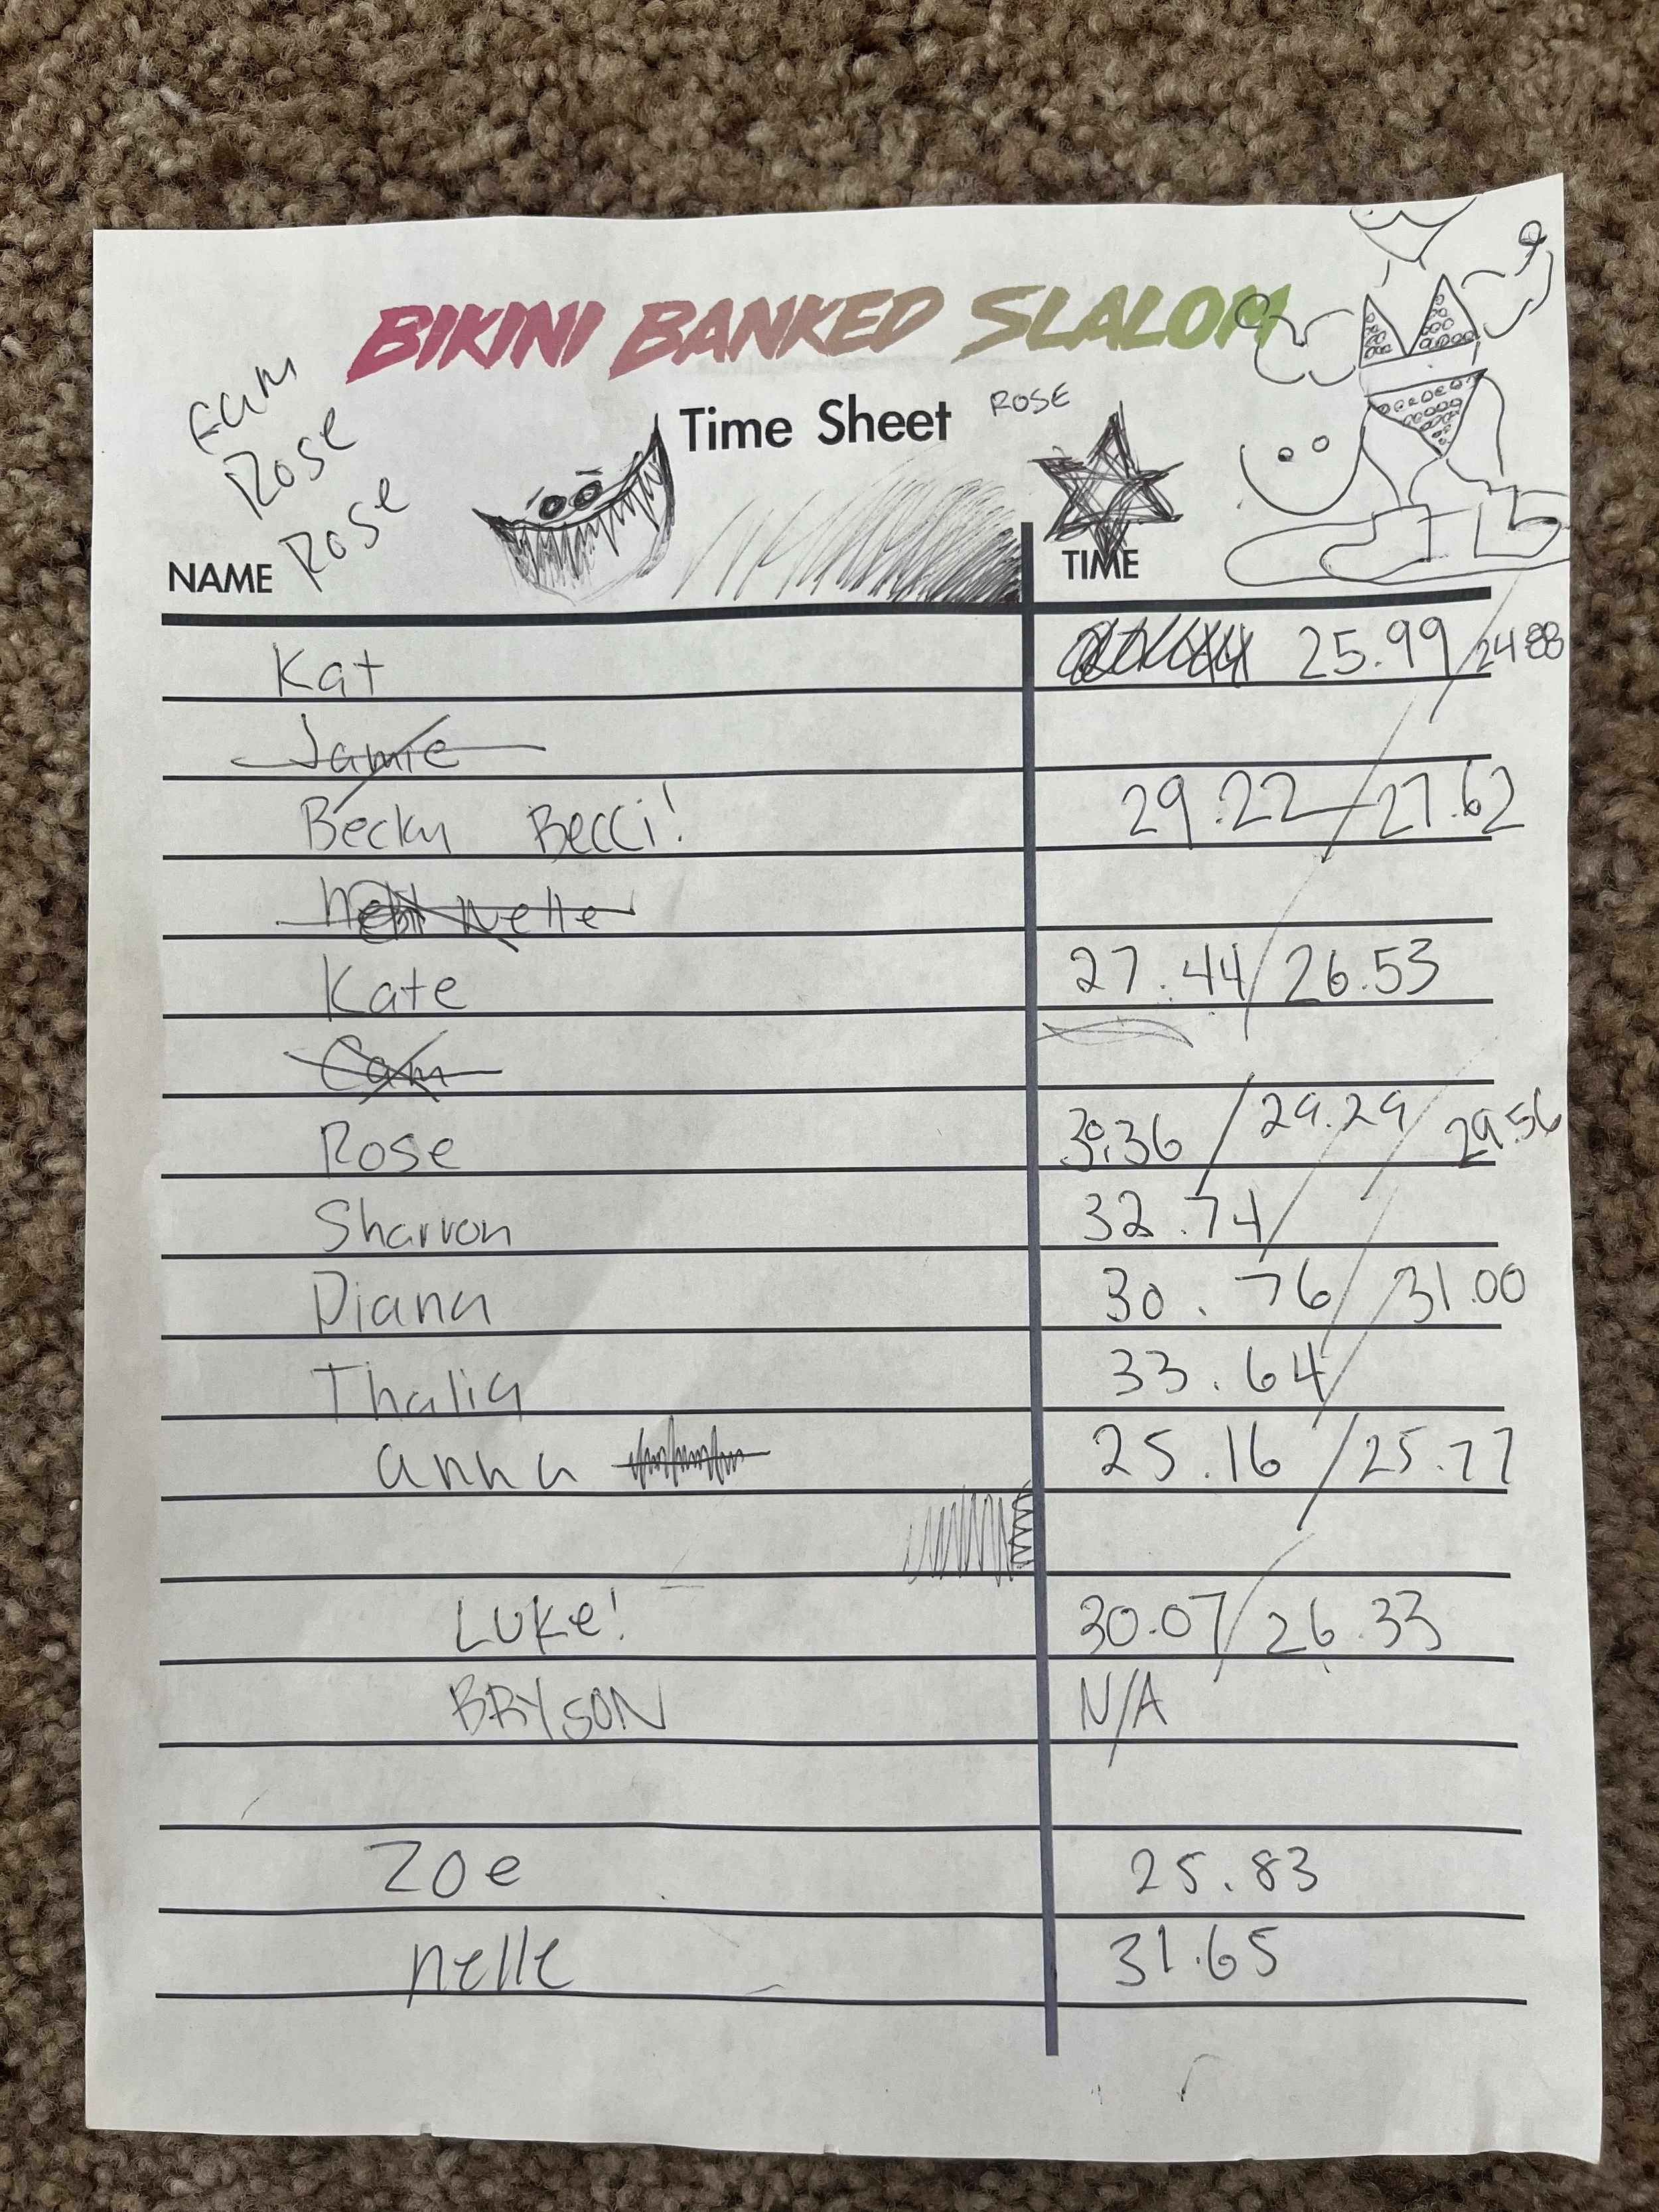 BIKINI BANKED SLALOM
Time Sheet ROSE
Rose
Rose
NAME TIME
Kat 25.99 / 24.88
Jamie
Becky Becci! 29.22 / 27.62
Nelle
Kate 27.44 / 26.53
Cam
Rose 30.36 / 29.29 / 29.56
Sharron 32.74 /
Diana 30.76 / 31.00
Thalia 33.64 /
anna 25.16 / 25.77
LUKE! 30.07 / 26.33
BRYSON N/A
Zoe 25.83
nelle 31.65